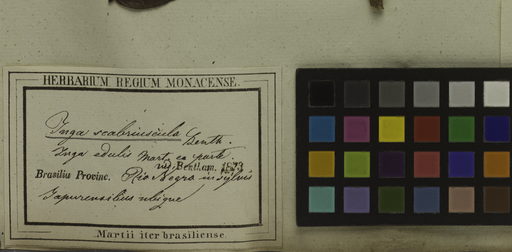 HERBARIUM REGIUM MONACENSE.
Inga scabriuscula Benth.
Inga edulis Mart. ex parte
vid. Bentham. 1873
Brasilia Provinc. Rio Negro in sylvis
Japurensibus
Martii iter brasiliense.